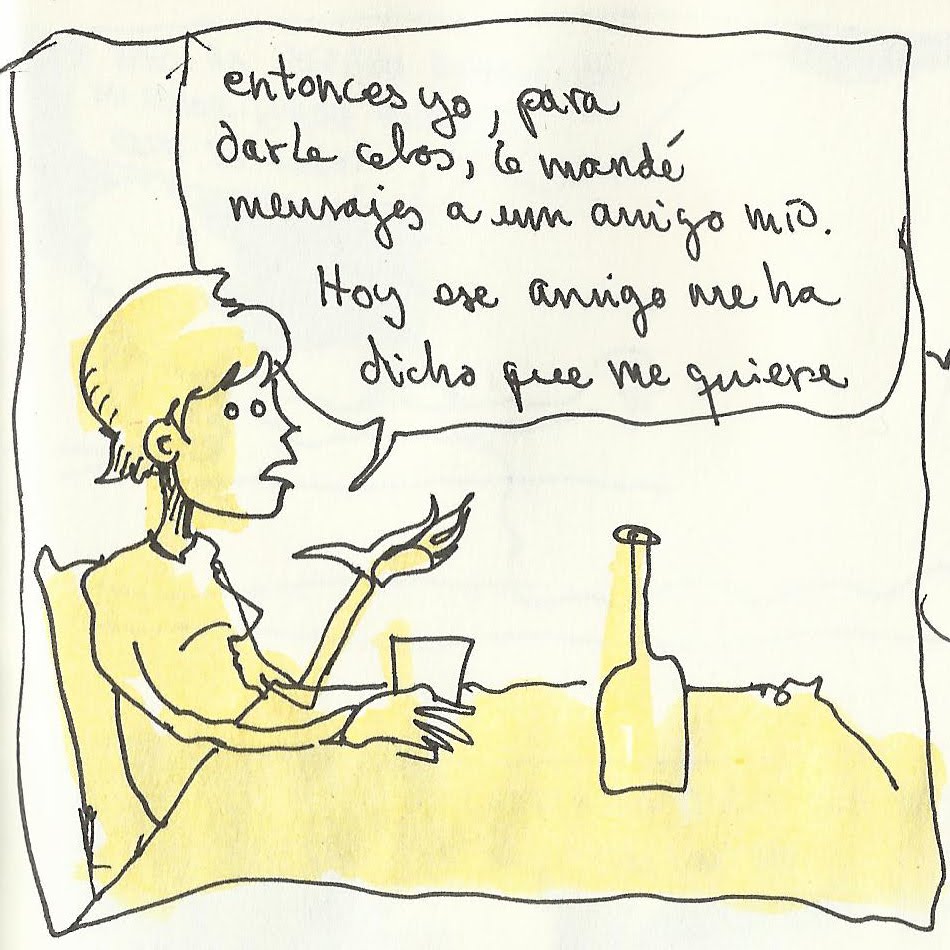 entonces yo, para
darle celos, le mandé
mensajes a un amigo mío.
Hoy ese amigo me ha
dicho que me quiere